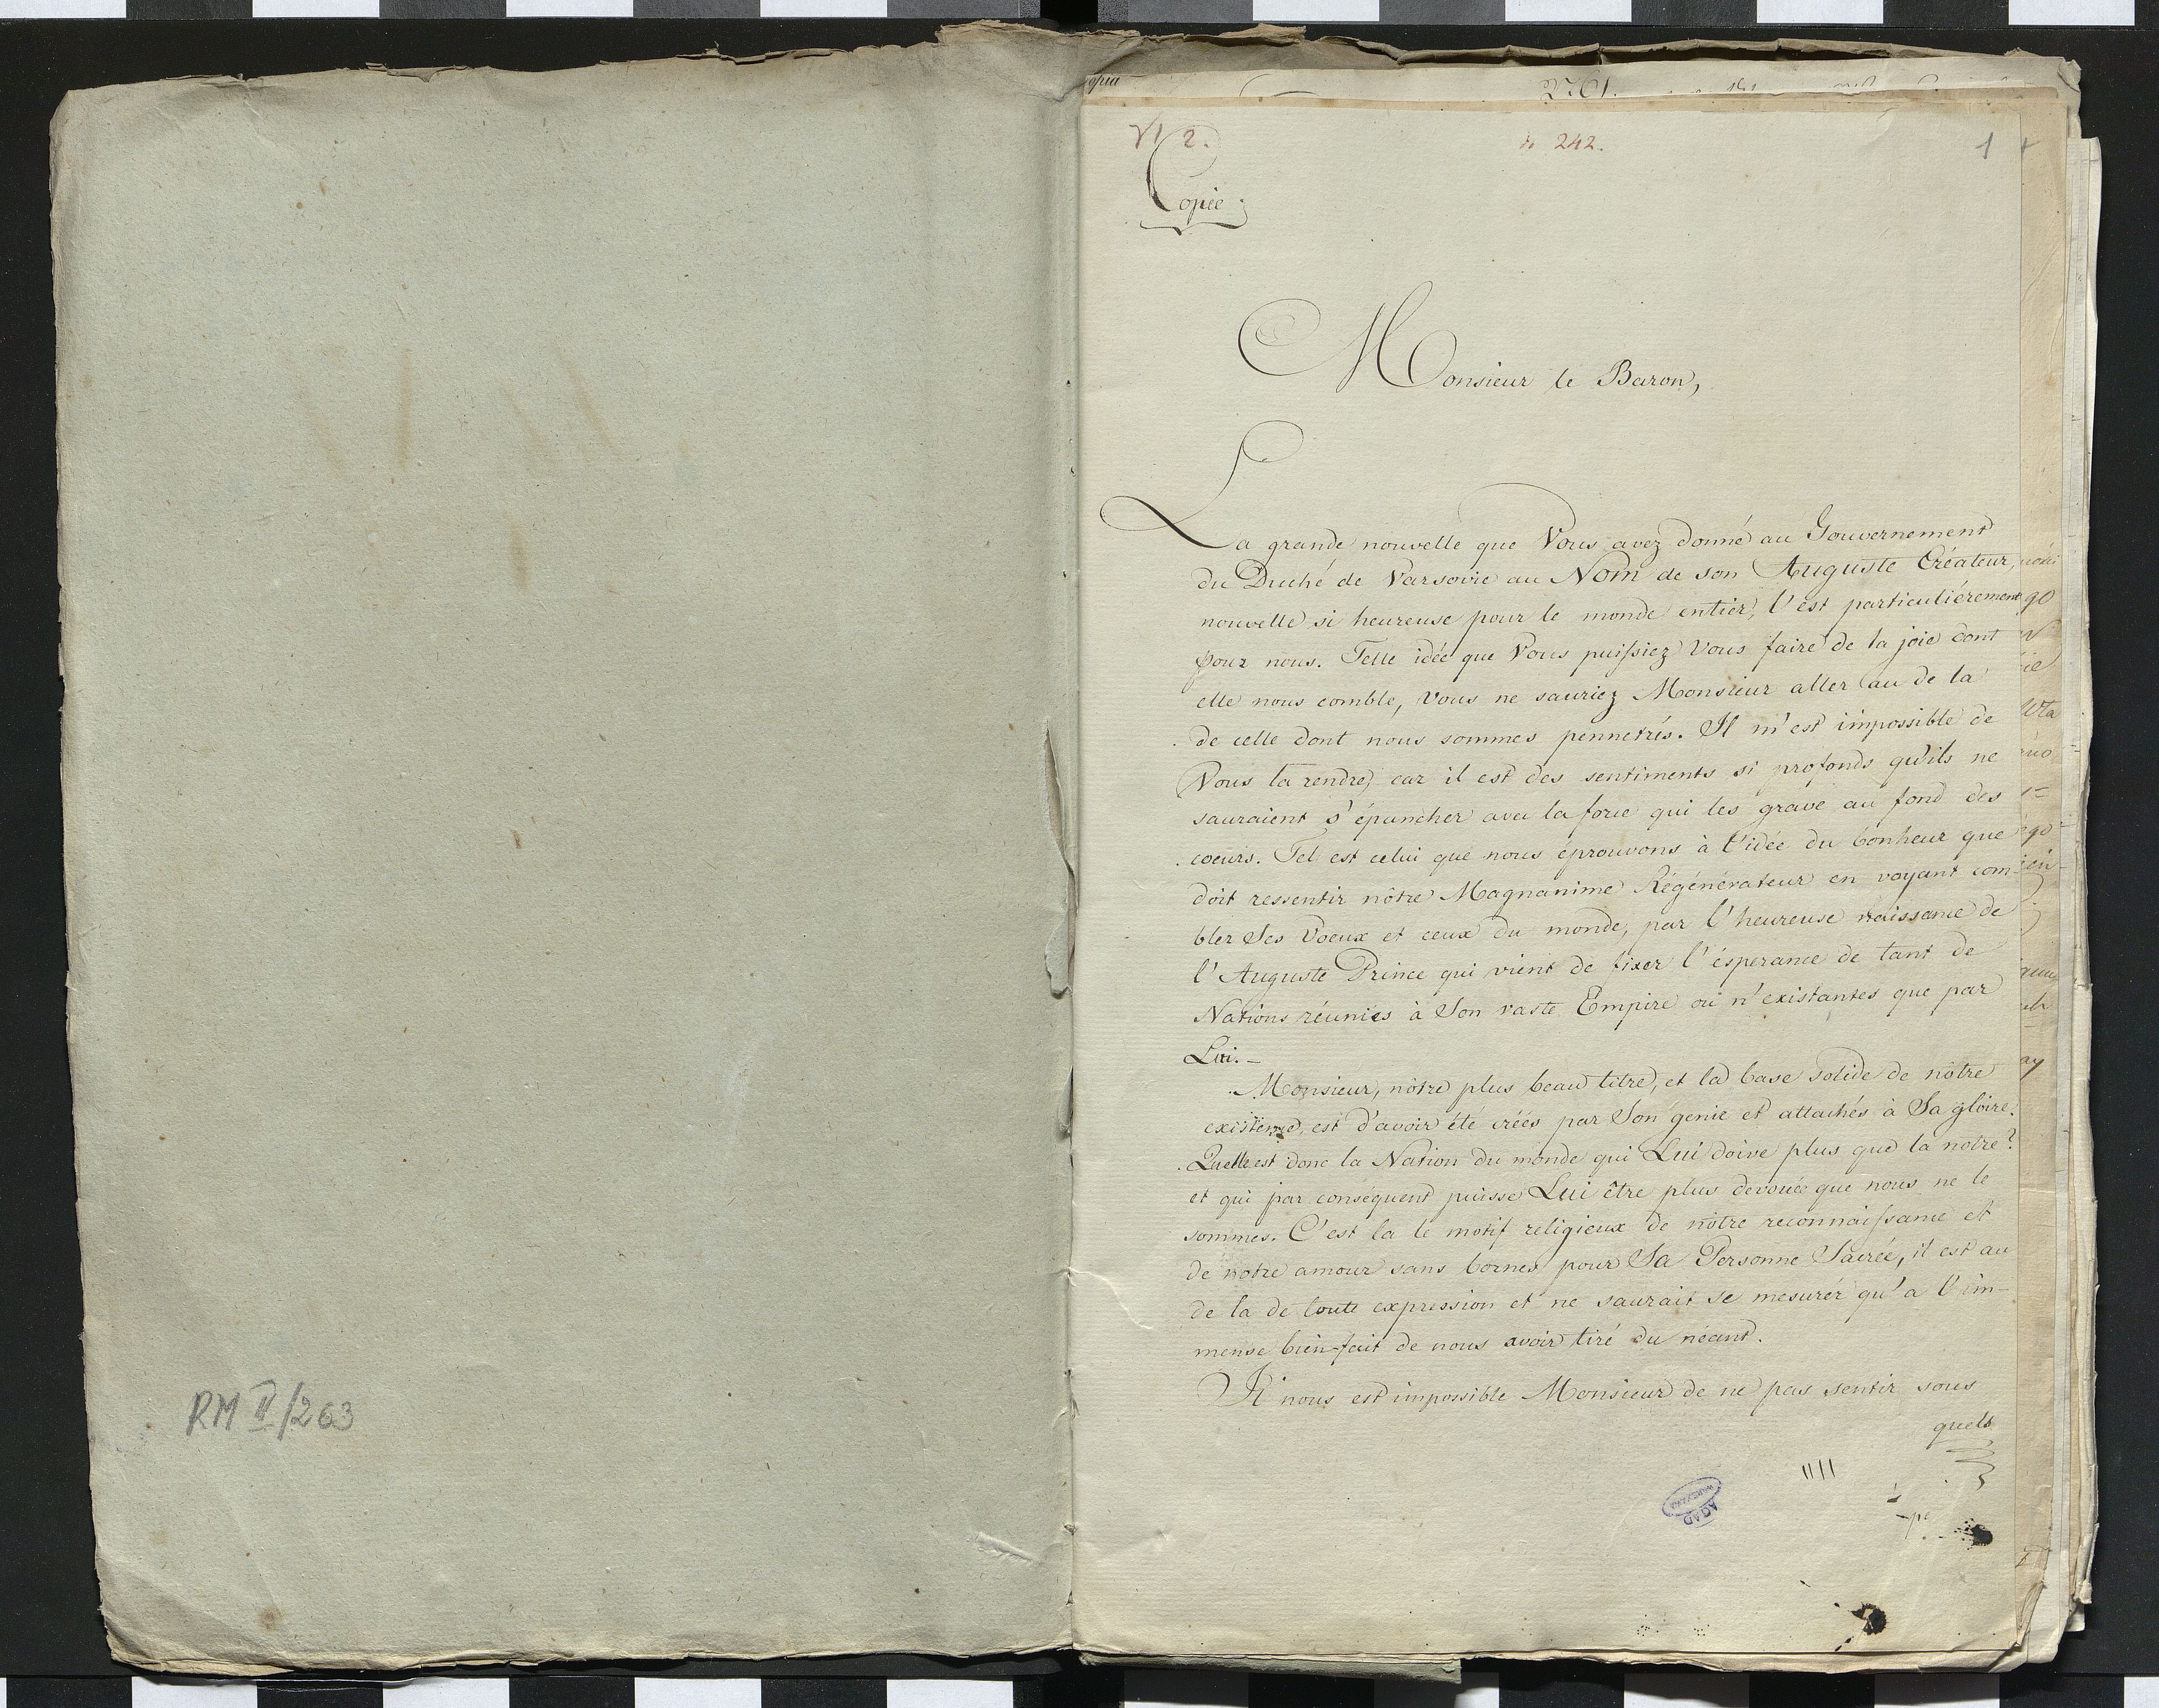 RM II/263
VI 2.
N 242.
1
Copie.
Monsieur le Baron,
La grande nouvelle que Vous avez donné au Gouvernement
du Duché de Varsovie au Nom de son Auguste Créateur,
nouvelle si heureuse pour le monde entier, l'est particuliérement
pour nous. Telle idée que Vous puissiez Vous faire de la joie dont
elle nous comble, Vous ne sauriez Monsieur aller au de la
de celle dont nous sommes pennetrés. Il m'est impossible de
Vous la rendre, car il est des sentiments si profonds qu'ils ne
sauraient s'épancher avec la force qui les grave au fond des
coeurs. Tel est celui que nous éprouvons à l'idée du bonheur que
doit ressentir nôtre Magnanime Régénérateur en voyant com-
bler Ses Voeux et ceux du monde, par l'heureuse naissance de
l'Auguste Prince qui vient de fixer l'ésperance de tant de
Nations réunies à Son vaste Empire où n'existantes que par
Lui.-
Monsieur, nôtre plus beau titre, et la base solide de nôtre
existence, est d'avoir été créés par Son genie et attachés à Sa gloire.
Quelle est donc la Nation du monde qui Lui doive plus que la notre?
et qui par conséquent puisse Lui être plus devouée que nous ne le
sommes. C'est la le motif religieux de nôtre reconnaissance et
de notre amour sans bornes pour Sa Personne Sacrée, il est au
de la de toute expression et ne saurait se mesurér qu'a l'im-
mense bien-fait de nous avoir tiré du néant.
Il nous est impossible Monsieur de ne pas sentir sous
quels
AGAD